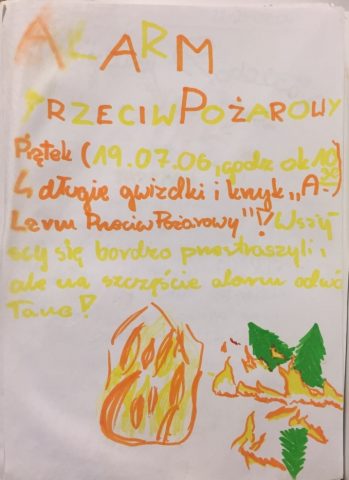 ALARM
PRZECIWPOŻAROWY
Piątek (19.07.06, godz ok 10
4 długie gwizdki i krzyk „A-
Larm PrzeciwPożarowy"! Wszy-
scy się bardzo przestraszyli,
ale na szczęście alarm odwo
łano!